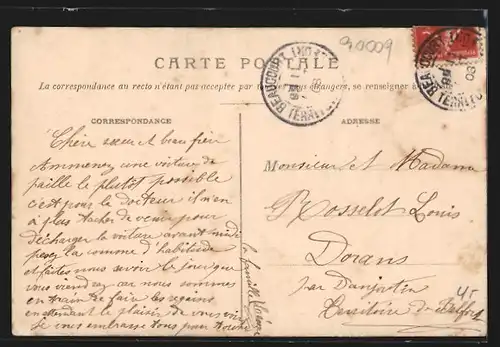 90009
CARTE POSTALE
La correspondance au recto n'étant pas acceptée par étrangers, se renseigner
BEAUCOURT
TERRIT
BEAUCOURT
TERRIT
CORRESPONDANCE
ADRESSE
Chère soeur et beau frère
Ammenez une voiture de
paille le plutot possible
c'est pour le docteur il n'en
à plus tacher de venir pour
décharger la voiture avant midi
pesez la comme d'habitude
et faites nous savoir le jour que
vous viendrez car nous sommes
en train de faire les regains
en attendant le plaisir de vous voir
Je vous embrasse tous pour
la famille
Monsieur et Madame
Rosselot Louis
Dorans
par Danjoutin
Territoire de Belfort
45